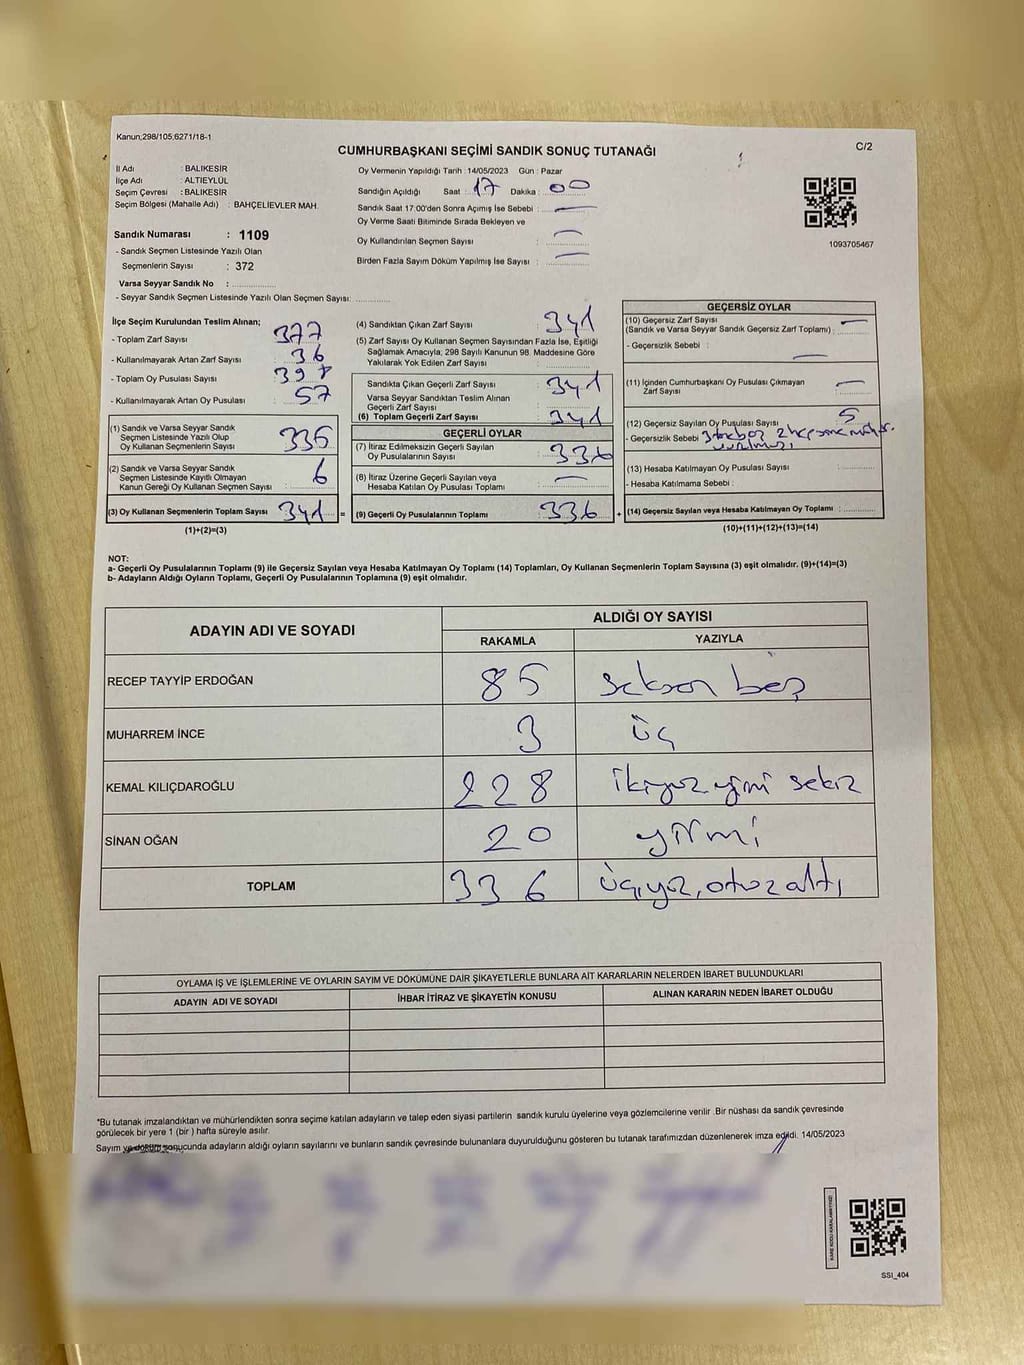 Kanun;298/105,6271/18-1
CUMHURBAŞKANI SEÇİMİ SANDIK SONUÇ TUTANAĞI
C/2
İl Adı : BALIKESİR
İlçe Adı : ALTIEYLÜL
Seçim Çevresi : BALIKESİR
Seçim Bölgesi (Mahalle Adı) : BAHÇELİEVLER MAH.
Sandık Numarası : 1109
- Sandık Seçmen Listesinde Yazılı Olan
Seçmenlerin Sayısı : 372
Varsa Seyyar Sandık No :
- Seyyar Sandık Seçmen Listesinde Yazılı Olan Seçmen Sayısı:
Oy Vermenin Yapıldığı Tarih :14/05/2023 Gün : Pazar
Sandığın Açıldığı Saat : 17 Dakika : 00
Sandık Saat 17:00'den Sonra Açımış İse Sebebi : —
Oy Verme Saati Bitiminde Sırada Bekleyen ve
Oy Kullandırılan Seçmen Sayısı : —
Birden Fazla Sayım Döküm Yapılmış İse Sayısı : —
1093705467
İlçe Seçim Kurulundan Teslim Alınan;
- Toplam Zarf Sayısı : 377
- Kullanılmayarak Artan Zarf Sayısı : 36
- Toplam Oy Pusulası Sayısı : 397
- Kullanılmayarak Artan Oy Pusulası : 57
(1) Sandık ve Varsa Seyyar Sandık
Seçmen Listesinde Yazılı Olup
Oy Kullanan Seçmenlerin Sayısı : 335
(2) Sandık ve Varsa Seyyar Sandık
Seçmen Listesinde Kayıtlı Olmayan
Kanun Gereği Oy Kullanan Seçmen Sayısı : 6
(3) Oy Kullanan Seçmenlerin Toplam Sayısı : 341 =
(1)+(2)=(3)
(4) Sandıktan Çıkan Zarf Sayısı : 341
(5) Zarf Sayısı Oy Kullanan Seçmen Sayısından Fazla İse, Eşitliği
Sağlamak Amacıyla; 298 Sayılı Kanunun 98. Maddesine Göre
Yakılarak Yok Edilen Zarf Sayısı :
Sandıkta Çıkan Geçerli Zarf Sayısı : 341
Varsa Seyyar Sandıktan Teslim Alınan
Geçerli Zarf Sayısı :
(6) Toplam Geçerli Zarf Sayısı : 341
GEÇERLİ OYLAR
(7) İtiraz Edilmeksizin Geçerli Sayılan
Oy Pusulalarının Sayısı : 336
(8) İtiraz Üzerine Geçerli Sayılan veya
Hesaba Katılan Oy Pusulası Toplamı : —
(9) Geçerli Oy Pusulalarının Toplamı : 336 +
GEÇERSİZ OYLAR
(10) Geçersiz Zarf Sayısı —
(Sandık ve Varsa Seyyar Sandık Geçersiz Zarf Toplamı) :
- Geçersizlik Sebebi : —
(11) İçinden Cumhurbaşkanı Oy Pusulası Çıkmayan
Zarf Sayısı : —
(12) Geçersiz Sayılan Oy Pusulası Sayısı : 5
- Geçersizlik Sebebi
(13) Hesaba Katılmayan Oy Pusulası Sayısı :
- Hesaba Katılmama Sebebi :
(14) Geçersiz Sayılan veya Hesaba Katılmayan Oy Toplamı :
(10)+(11)+(12)+(13)=(14)
NOT:
a- Geçerli Oy Pusulalarının Toplamı (9) ile Geçersiz Sayılan veya Hesaba Katılmayan Oy Toplamı (14) Toplamları, Oy Kullanan Seçmenlerin Toplam Sayısına (3) eşit olmalıdır. (9)+(14)=(3)
b- Adayların Aldığı Oyların Toplamı, Geçerli Oy Pusulalarının Toplamına (9) eşit olmalıdır.
ADAYIN ADI VE SOYADI
ALDIĞI OY SAYISI
RAKAMLA YAZIYLA
RECEP TAYYİP ERDOĞAN 85 seksen beş
MUHARREM İNCE 3 üç
KEMAL KILIÇDAROĞLU 228 ikiyüz yirmi sekiz
SİNAN OĞAN 20 yirmi
TOPLAM 336 üçyüz, otuz altı
OYLAMA İŞ VE İŞLEMLERİNE VE OYLARIN SAYIM VE DÖKÜMÜNE DAİR ŞİKAYETLERLE BUNLARA AİT KARARLARIN NELERDEN İBARET BULUNDUKLARI
ADAYIN ADI VE SOYADI İHBAR İTİRAZ VE ŞİKAYETİN KONUSU ALINAN KARARIN NEDEN İBARET OLDUĞU
*Bu tutanak imzalandıktan ve mühürlendikten sonra seçime katılan adayların ve talep eden siyasi partilerin sandık kurulu üyelerine veya gözlemcilerine verilir .Bir nüshası da sandık çevresinde
görülecek bir yere 1 (bir ) hafta süreyle asılır.
Sayım ve döküm sonucunda adayların aldığı oyların sayılarını ve bunların sandık çevresinde bulunanlara duyurulduğunu gösteren bu tutanak tarafımızdan düzenlenerek imza edildi. 14/05/2023
SSI_404